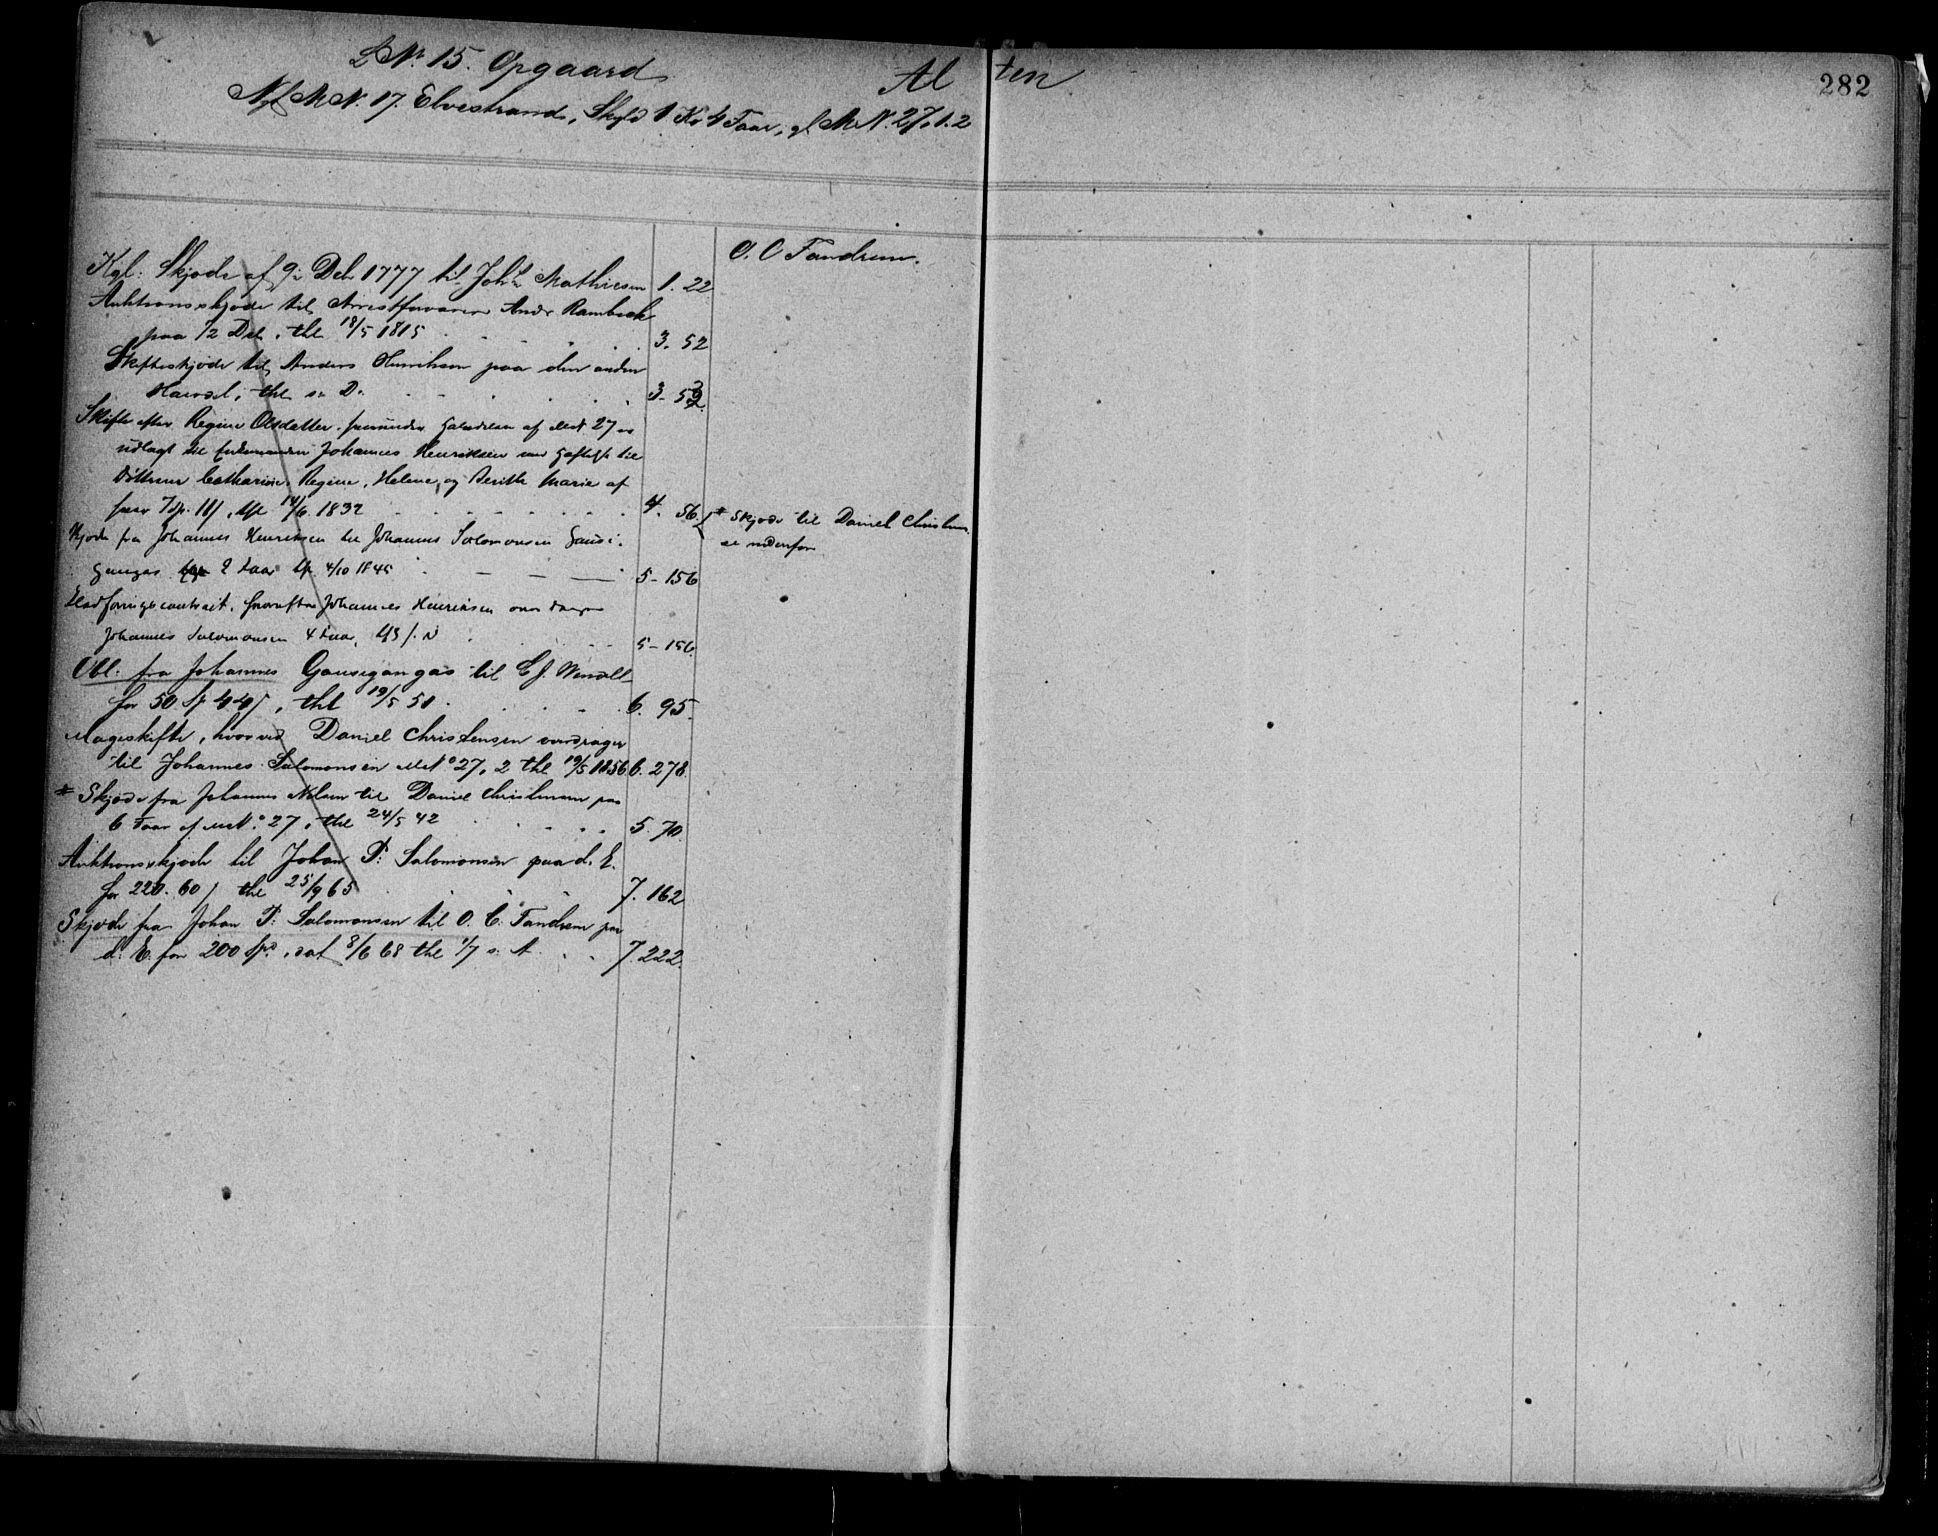 LNr. 15. Opgaard
Alten
282
Nyt M.N. 17. Elvestrand, Skyld 1 Ko 4 Faar, gl. M.N. 27, 1. 2
O. C Tandrem.
Kgl: Skjøde af 9: Deb 1777 til Joh. Mathiesen 1. 22
Auktionsskjøde til Arrestforvarer Andr Rambech
paa 1/2 Del, thl 18/5 1815 3. 52
Skifteskjøde til Anders Henriksen paa den anden
Halvdel, thl s. D. 3. 52
Skifte efter Regine Olsdatter. af Mt 27
udlagt til Enkemanden Johannes Henriksen med Hæftelse til
Døttrene Catharine, Regine, Helene, og Berithe Marie af
hver 7 Sp. 11 ß, thl 14/6. 1832 4. 56.
* Skjøde til Daniel Christensen
se nedenfor
Skjøde fra Johannes Henriksen til Johannes Salomonsen Gausi-
gangas 2 Faar thl. 4/10 1845 5-156
Kladforingscontract, hvorefter Johannes Henriksen
Johannes Salomonsen 4 Faar, 5-156
Obl. fra Johannes Gausigangas til Cf. Wensell
for 50 Sp 44 ß, thl 19/5 51 6. 95.
Mageskifte, hvorved Daniel Christensen overdrager
til Johannes Salomonsen Mt No 27, 2 thl 19/5 1856 6. 278.
* Skjøde fra Johannes Nilsen til Daniel Christensen paa
6 Faar af Mt. No 27, thl 24/5 42 5. 70.
Auktionsskjøde til Johan P: Salomonsen paa d. E.
for 220. 60 ß thl 25/9 65 7. 162
Skjøde fra Johan P: Salomonsen til O. C. Tandrem paa
d. E. for 200 Spd, dat 8/6 68 thl 1/7 s. A. 7. 222.